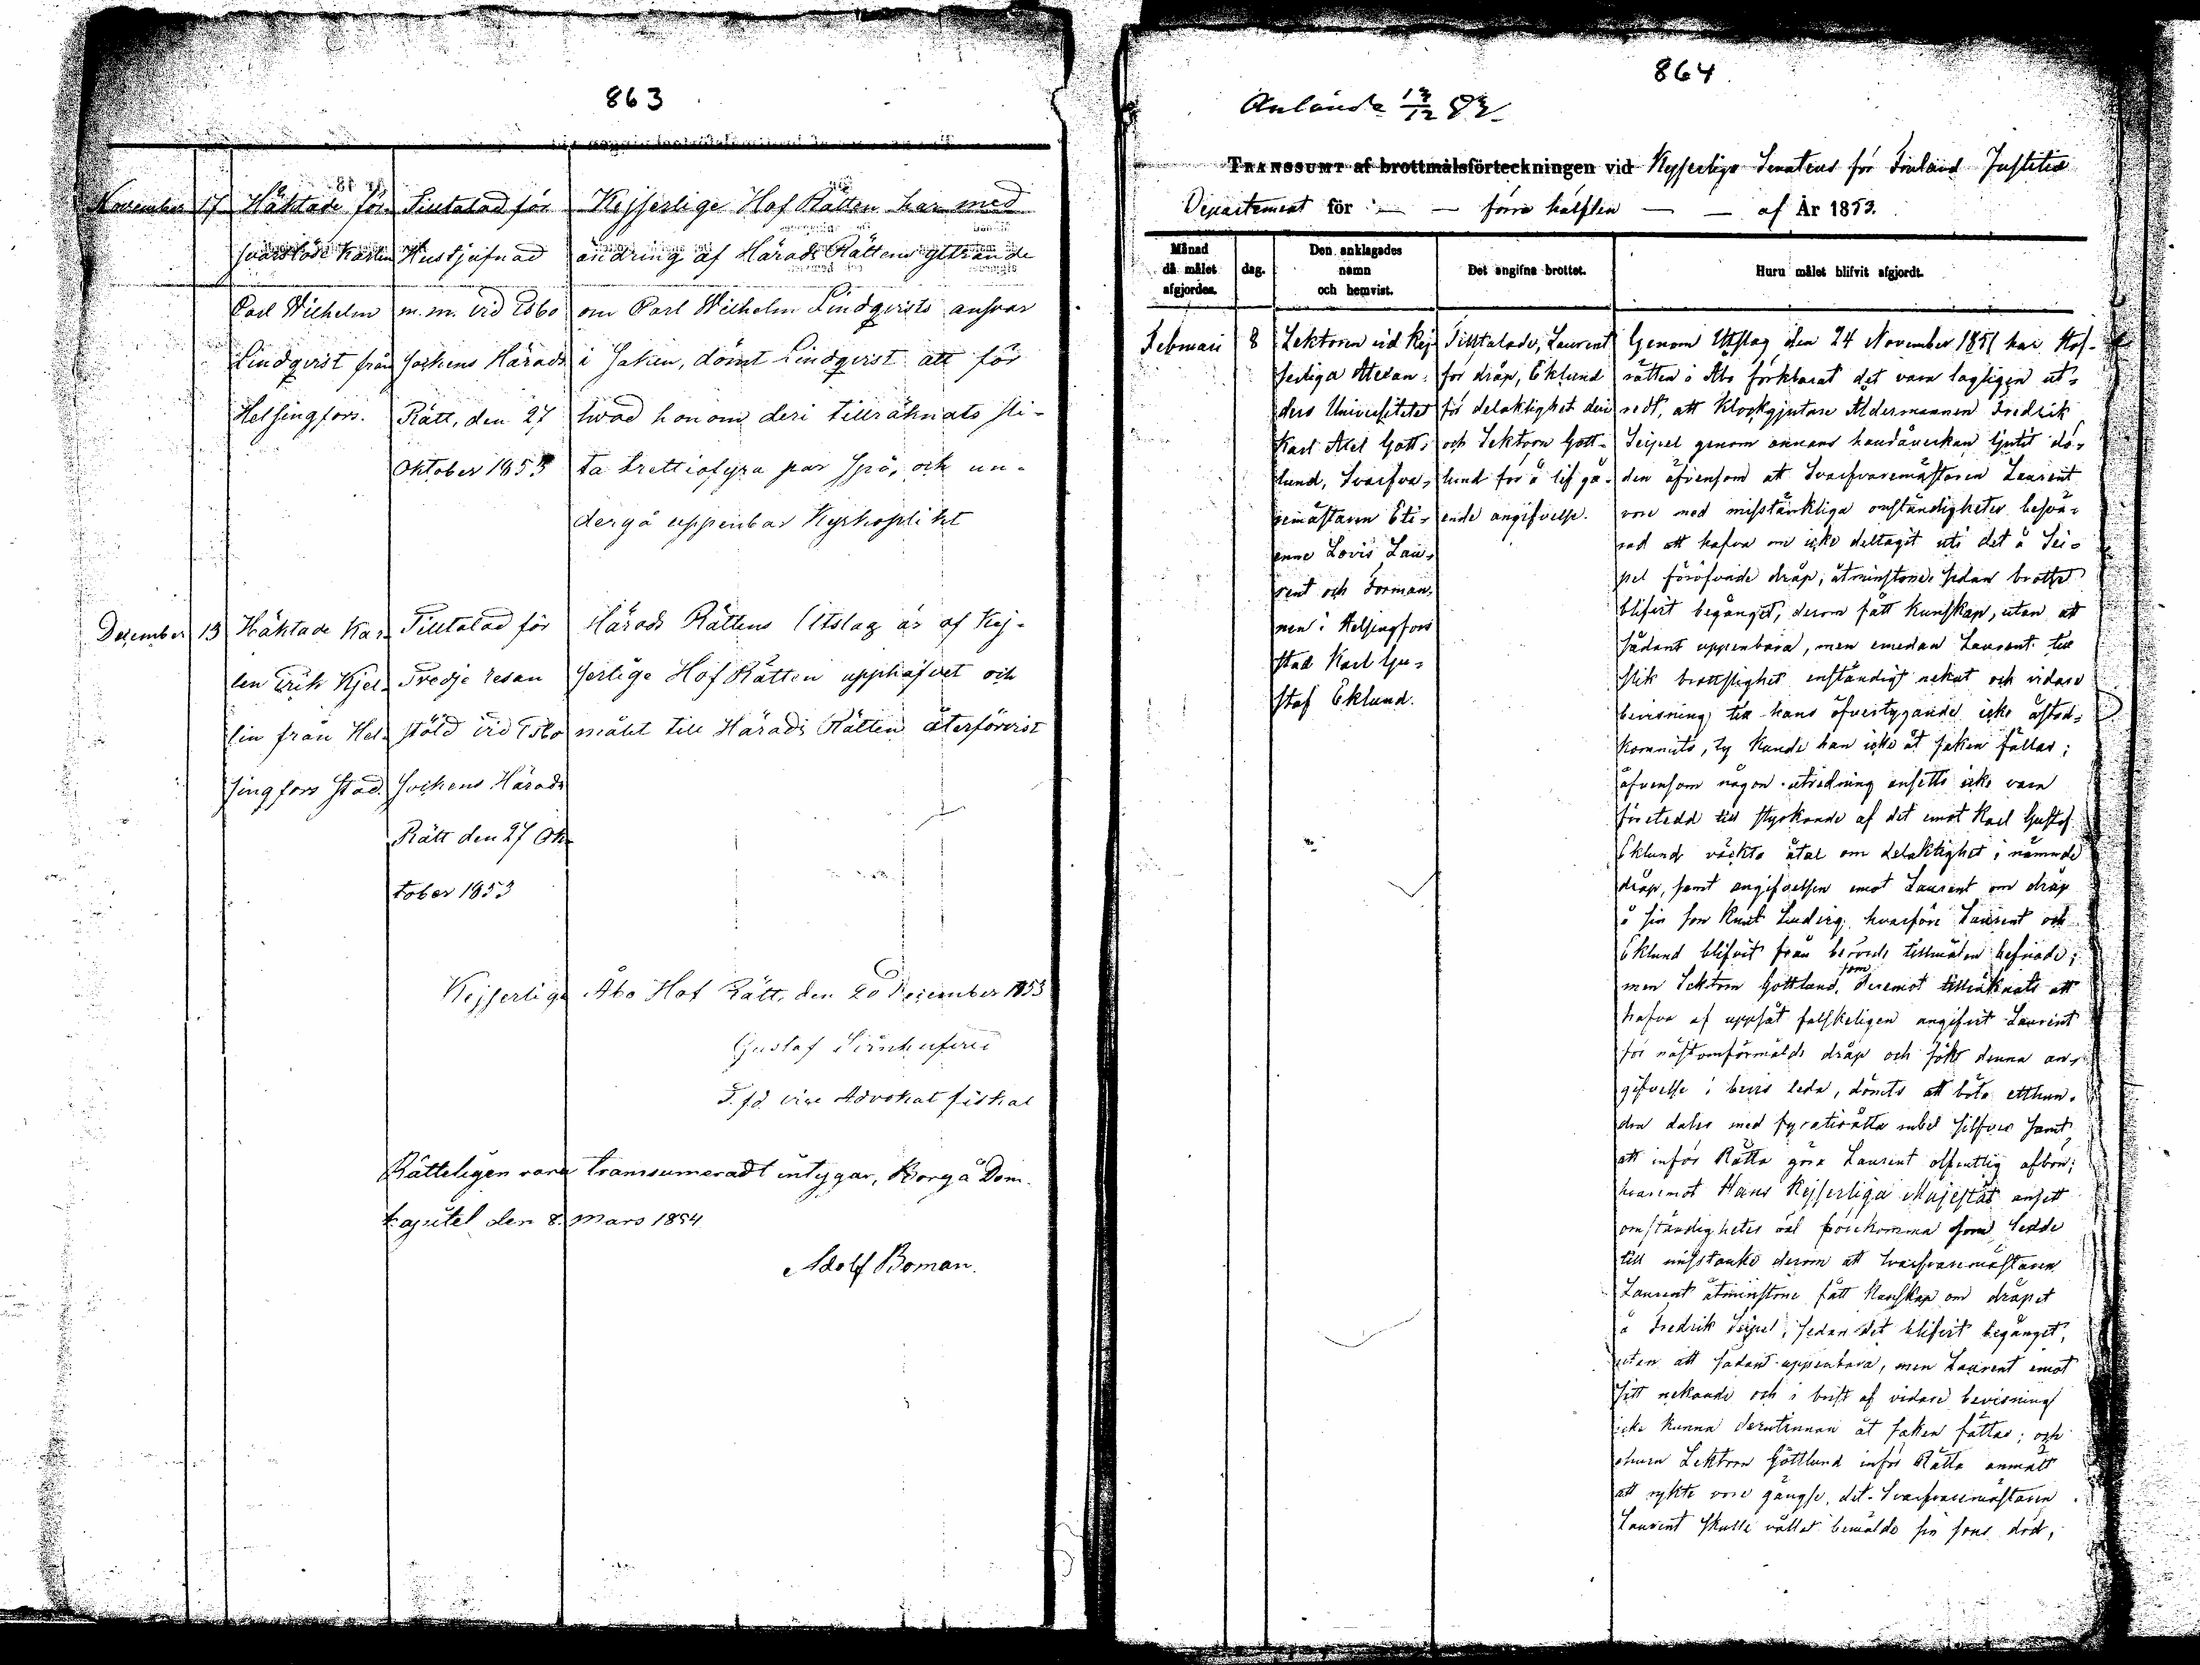 863
November 17 Häktade för- Tilltalad för Kejserlige Hof Rätten har med
svarslöse Karlen Hustjufnad ändring af Härads Rättens yttrande
Carl Wilhelm m. m. vid Esbo om Carl Wilhelm Lindqvists ansvar
Lindqvist från sockens Härads i saken, dömt Lindqvist att för
Helsingfors. Rätt, den 27 hvad honom deri tillräknats sli-
Oktober 1853 ta trettiofyra par spö, och un-
dergå uppenbar Kyrkoplikt
December 13 Häktade Kar- Tilltalad för Härads Rättens Utslag är af Kej-
len Erik Kjel- Tredje resan serlige Hof Rätten upphäfvet och
lin från Hel- stöld vid Esbo målet till Härads Rätten återförvist
singfors stad. sockens Härads
Rätt den 27 Ok-
tober 1853
Kejserlige Åbo Hof Rätt, den 20 December 1853
Gustaf
T. f. d. vice Advokat fiskal
Rätteligen vara transsumeradt intygar, Borgå Dom-
kapitel den 8 Mars 1854
Adolf Boman.
864
Anlände 13/12 53
TRANSSUMT af brottmålsförteckningen vid Kejserliga Senatens för Finland Justitiæ
Departement för — — förra hälften — — af År 1853.
Månad då målet afgjordes. dag. Den anklagades namn och hemvist. Det angifna brottet. Huru målet blifvit afgjordt.
Februari 8 Lektoren vid Kej- Tilltalade, Laurent Genom Utslag den 24 November 1851 har Hof-
serliga Alexan- för dråp, Eklund rätten i Åbo förklarat det vara lagligen ut-
ders Universitetet för delaktighet deri redt, att Klockgjutare Åldermannen Fredrik
Karl Axel Gott- och Lektorn Gott- Seipel genom annans handaverkan ljutit dö-
lund, Svarfva- lund för å lif gå- den äfvensom att Svarfvaremästaren Laurent
remästaren Eti- ende angifvelse. vore med misstänkliga omständigheter besvä-
enne Lovis Lau- rad att hafva om icke deltagit uti det å Sei-
rent och Forman- pel föröfvade dråp, åtminstone sedan brottet
nen i Helsingfors blifvit begånget, derom fått kunskap, utan att
stad Karl Gu- sådant uppenbara, men emedan Laurent till
staf Eklund. slik brottslighet enständigt nekat och vidare
bevisning till hans öfvertygande icke åstad-
kommits, ty kunde han icke åt saken fällas;
äfvensom någon utredning ansetts icke vara
företedd till styrkande af det emot Karl Gustaf
Eklund väckta åtal om delaktighet i nämnde
dråp, samt angifvelsen emot Laurent om dråp
å sin son Knut Ludvig, hvarföre Laurent och
Eklund blifvit från berörde tillmälen befriade;
men Lektorn Gottlund, som deremot tillräknats att
hafva af uppsåt falskeligen angifvit Laurent
för nästomförmälde dråp och sökt denna an-
gifvelse i bevis leda, dömts att böta etthun-
dra daler med fyratioåtta rubel silfver samt
att inför Rätta göra Laurent offentlig afbön;
hvaremot Hans Kejserliga Majestät ansett
omständigheter väl förekomma som ledde
till misstanke derom att Svarfvaremästaren
Laurent åtminstone fått kunskap om dråpet
å Fredrik Seipel, sedan det blifvit begånget,
utan att sådant uppenbara, men Laurent emot
sitt nekande och i brist af vidare bevisning
icke kunna derutinnan åt saken fällas; och
ehuru Lektorn Gottlund inför Rätta anmält
att rykte vore gängse, det Svarfvaremästaren
Laurent skulle vållat bemälde sin sons död,